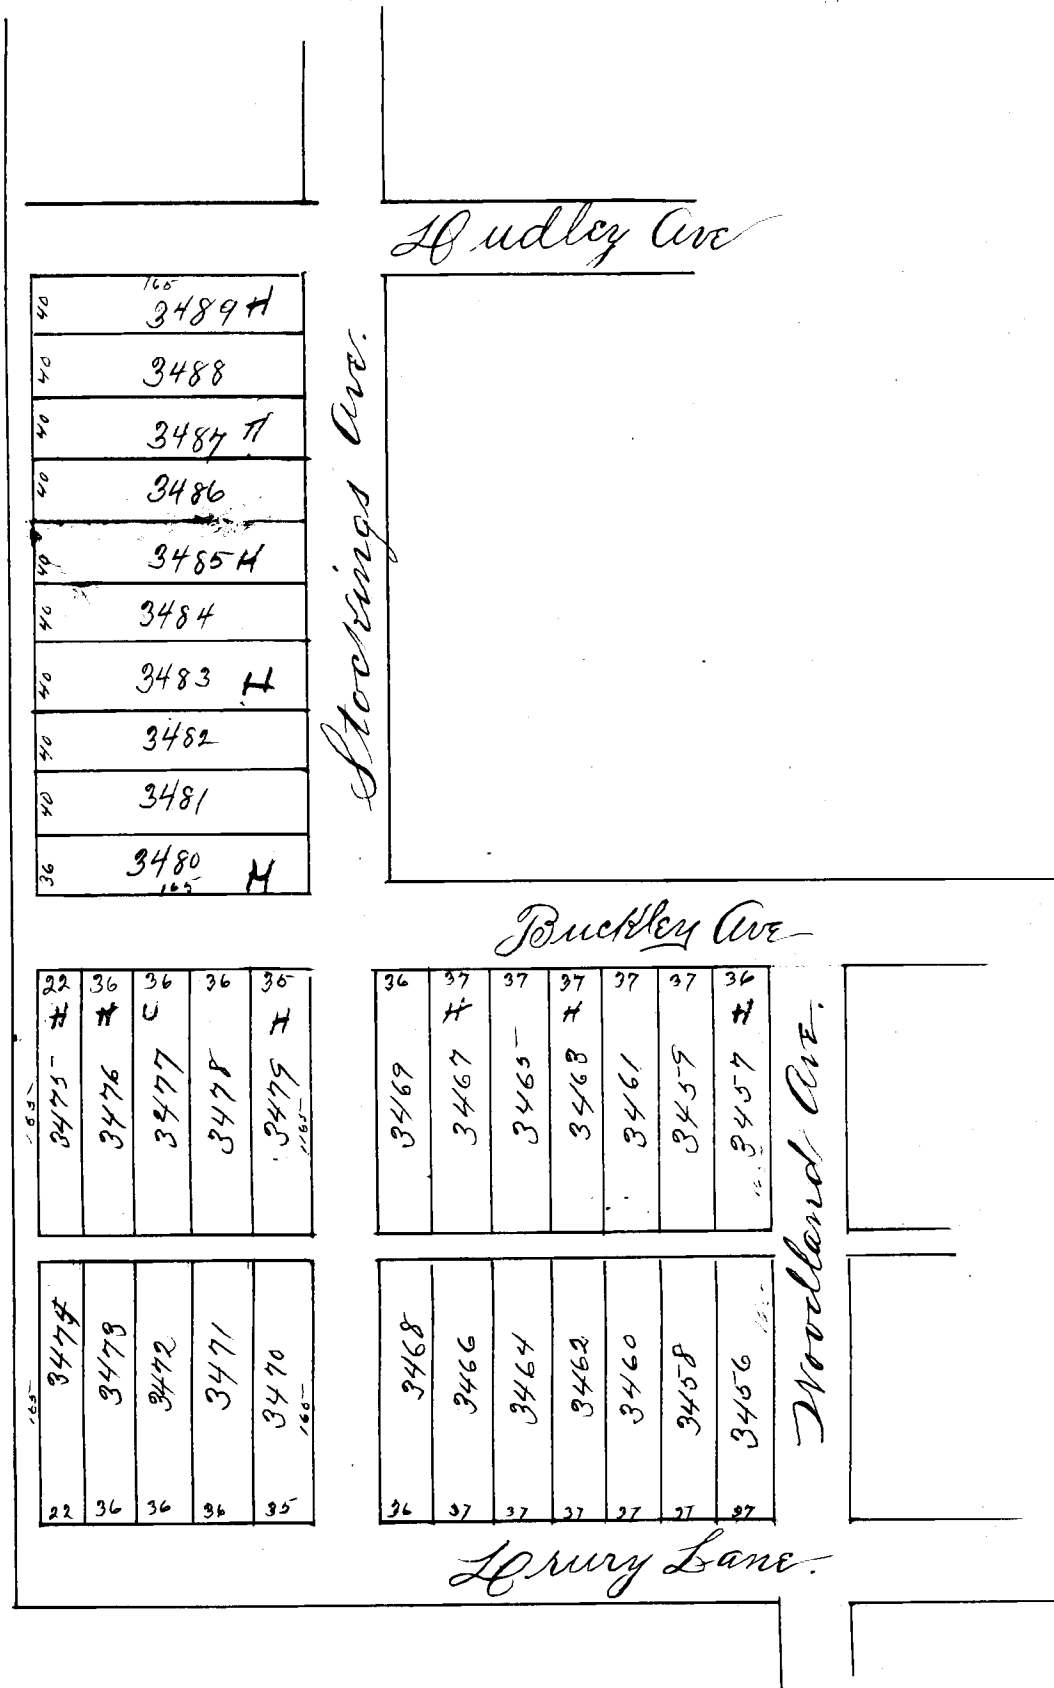 Dudley Ave
165
40 3489 H
40 3488
40 3487 H
40 3486
40 3485 H
40 3484
40 3483 H
40 3482
40 3481
36 3480 H
165
Stockings Ave.
Buckley Ave
22 36 36 36 35
H H C H
3475 3476 3477 3478 3479
165 165
36 37 37 37 37 37 36
H H H
3469 3467 3465 3463 3461 3459 3457
Woodland Ave.
3474 3473 3472 3471 3470
165 165
22 36 36 36 35
3468 3466 3464 3462 3460 3458 3456
36 37 37 37 37 37 37
Drury Lane.